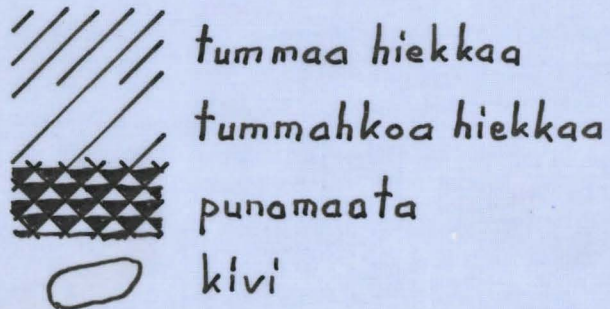 tummaa hiekkaa
tummahkoa hiekkaa
punamaata
kivi